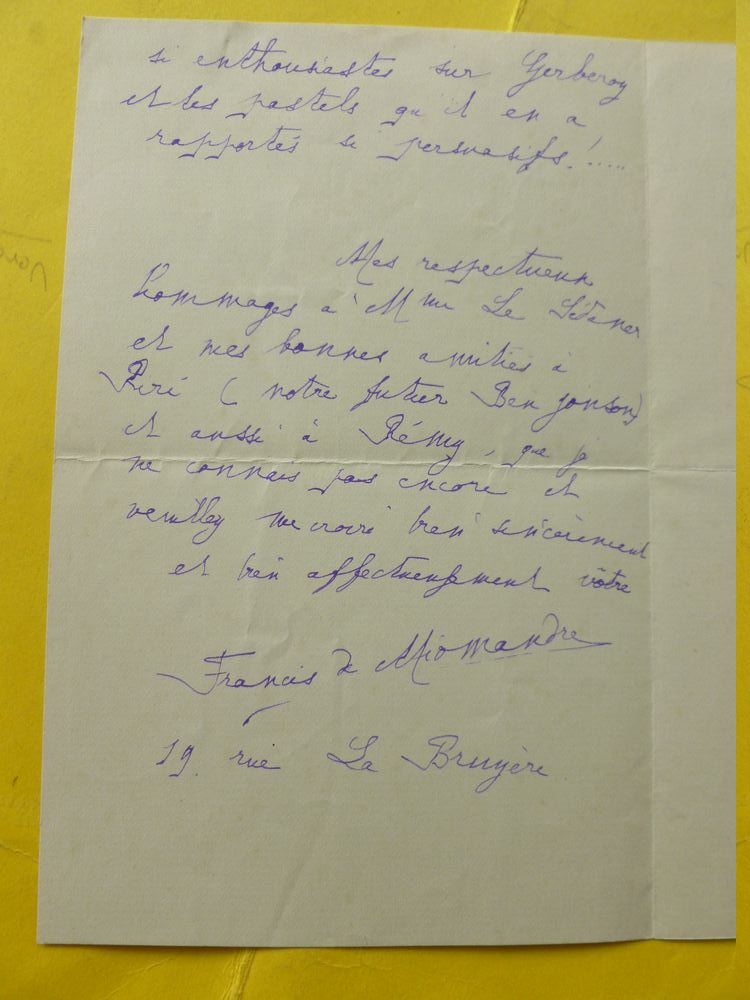 si enthousiastes sur Gerberoy
et les pastels qu'il en a
rapportés si persuasifs !.....
Mes respectueux
hommages à Mme Le Sidaner
et mes bonnes amitiés à
(notre futur Ben Jonson)
et aussi à Rémy, que je
ne connais pas encore et
veuillez me croire bien sincèrement
et bien affectueusement vôtre
Francis de Miomandre
19 rue La Bruyère